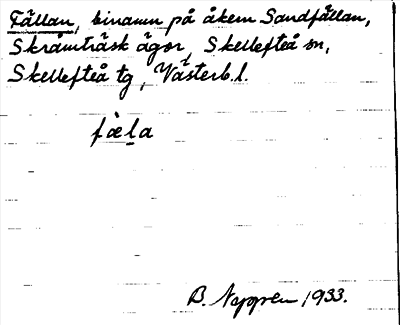 Fällan, binamn på åkern Sandfällan,
Skråmträsk ägor, Skellefteå sn,
Skellefteå tg, Västerb. l.
fæ̀la
B. Nygren 1933.